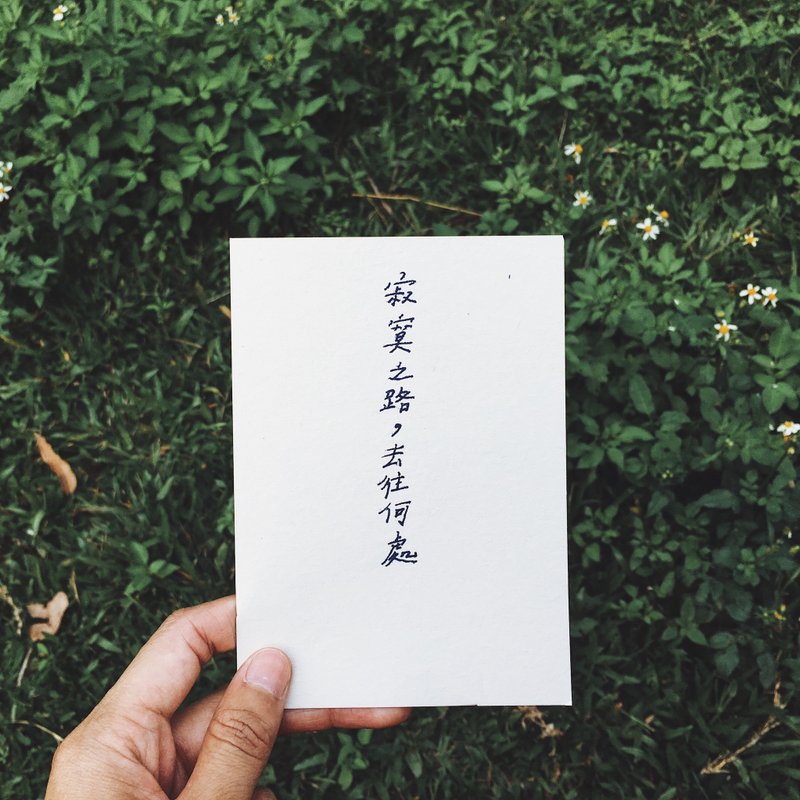 寂寞之路，去往何處